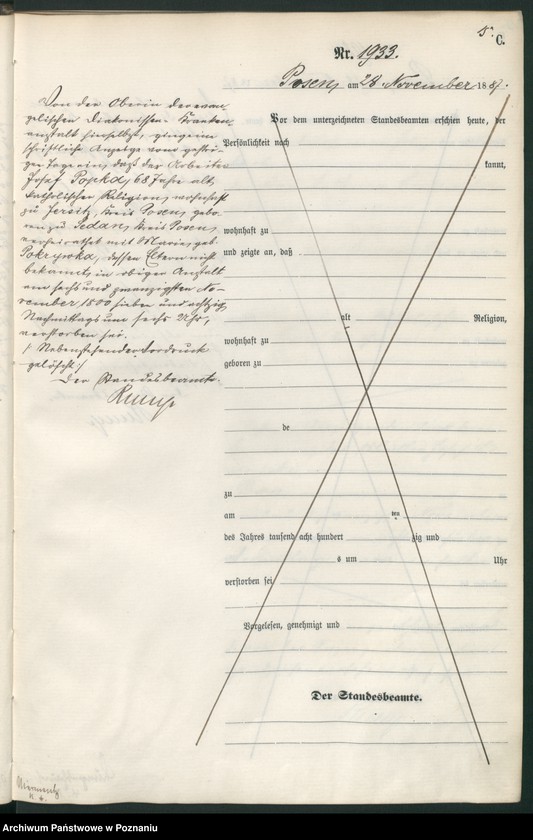 5.
C.
Nr. 1933.
Posen, am 28. November 1887.
Von der Oberin der evan-
gelischen Diakonissen-Kranken-
anstalt hierselbst, ging eine
schriftliche Anzeige vom gestri-
gen Tage ein, daß der Arbeiter
Josef Popka, 68 Jahre alt,
katholischer Religion, wohnhaft
zu Jersitz, Kreis Posen, gebo-
ren zu Sedan, Kreis Posen,
verheirathet mit Marie, geb.
Pokrywka, dessen Eltern nicht
bekannt, in obiger Anstalt
am sechs und zwanzigsten No-
vember 1800 sieben und achtzig
Nachmittags um sechs Uhr,
verstorben sei.
/: Nebenstehender Vordruck
gelöscht :/
Der Standesbeamte.
Vor dem unterzeichneten Standesbeamten erschien heute, der
Persönlichkeit nach
kannt,
wohnhaft zu
und zeigte an, daß
alt Religion,
wohnhaft zu
geboren zu
de
zu
am ten
des Jahres tausend acht hundert zig und
s um Uhr
verstorben sei
Vorgelesen, genehmigt und
Der Standesbeamte.
Archiwum Państwowe w Poznaniu